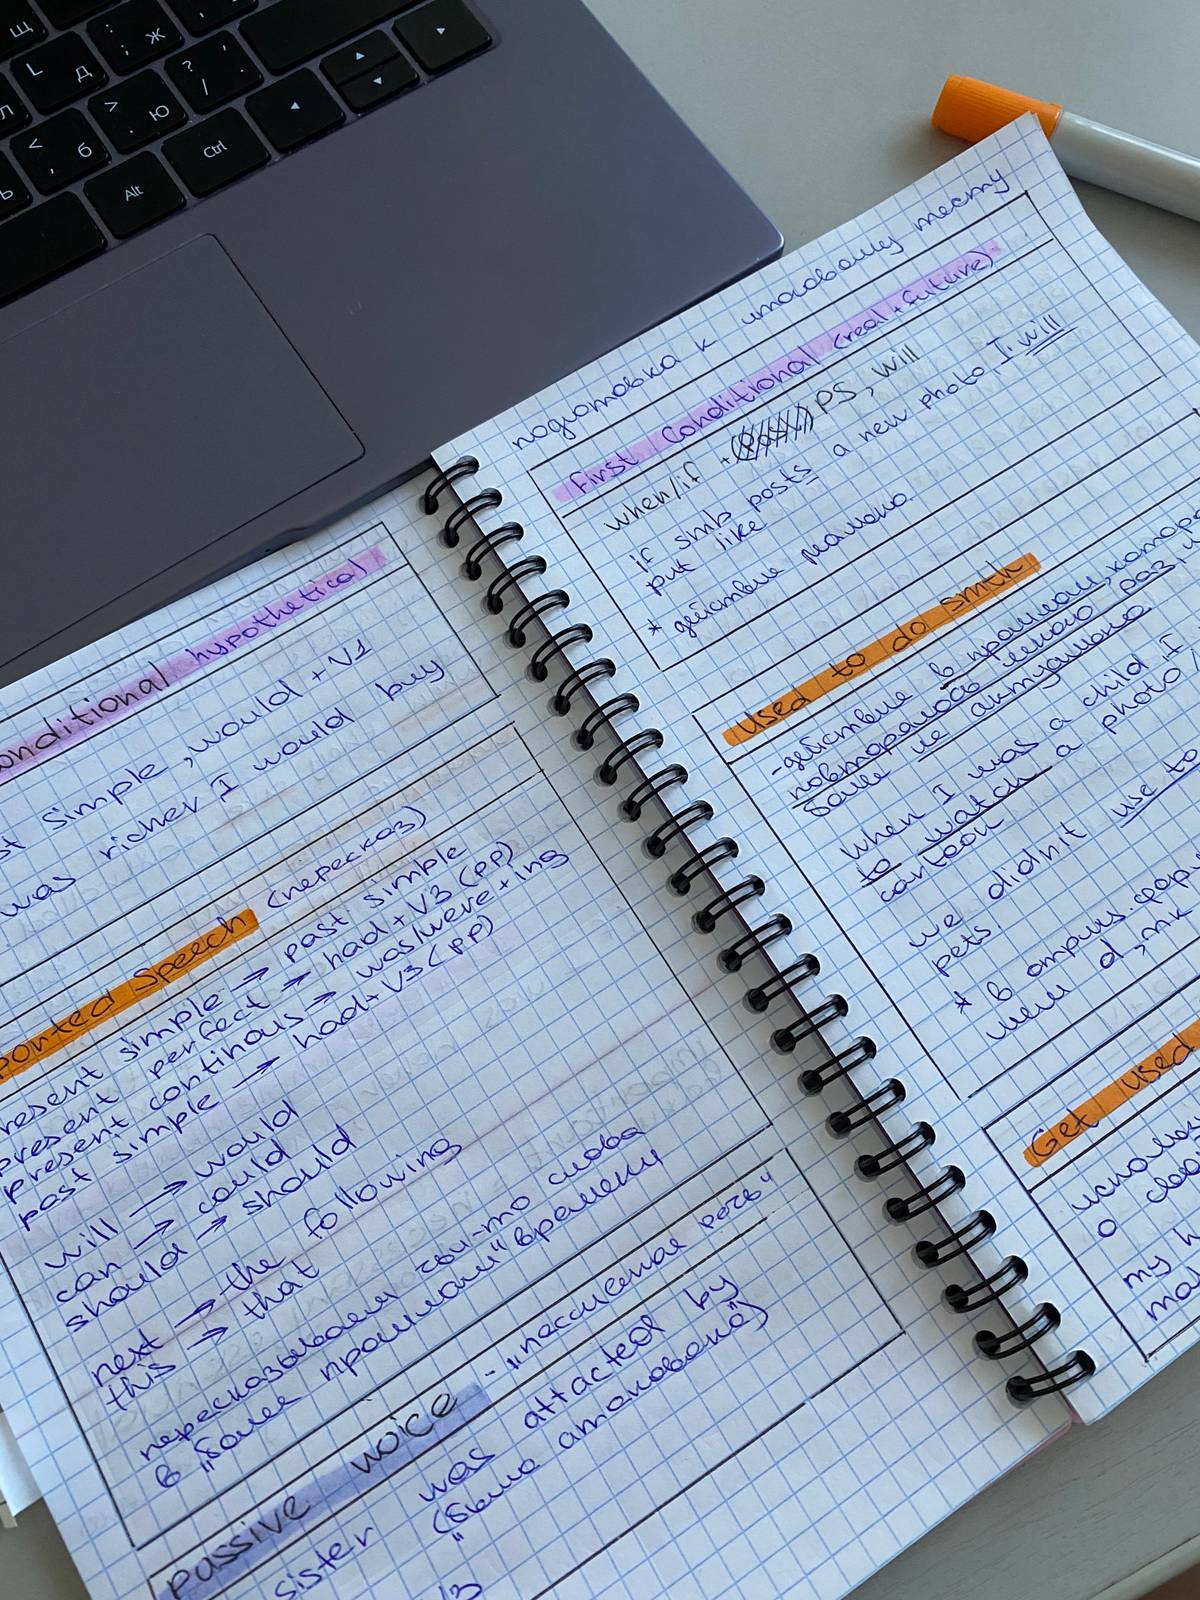 Щ
; Ж
L Д
? /
Л
> . Ю
< , Б
Ь
Ctrl
Alt
onditional hypothetical
st simple, would + V1
was richer I would buy
ported Speech (пересказ)
resent simple → past simple
present perfect → had + V3 (PP)
present continous → was/were + ing
past simple → had + V3 (PP)
will → would
can → could
should → should
next → the following
this → that
пересказываем чьи-то слова
в "более прошлом" времени
passive woice - "пассивная речь"
sister was attacted by
("была атакована")
V3
подготовка к итоговому тесту
First Conditional (real + future)
when/if + PS, will
if smb posts a new photo, I will
put like
* действие реально.
Used to do smth
- действие в прошлом, котор
повторялось много раз,
более не актуально
when I was a child, I
to watch a photo/
cartoon
we didnit use to
pets.
* в отриц. фор
нет d, т.к
Get used
использ
о
my h
mak